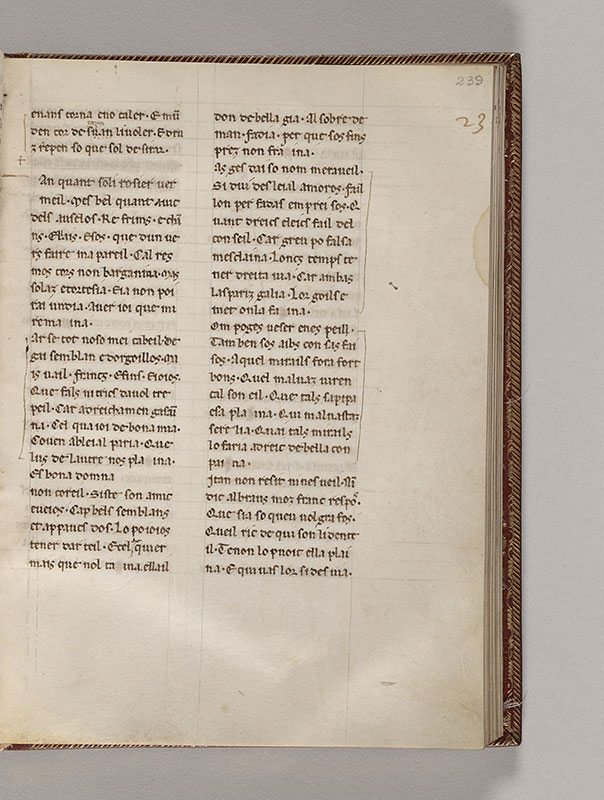 239
23
enans torna eno caler · E mū
den cor de liuoler · Edru
z repen so que sol desirar.
An quant soli rosier uer
meil · Mes bel quant auic
dels auselos · Refrims · echā
ns · Elais · Esos · que dun ue
rs faire ma pareil · Cal res
mos cors non barganna · Mas
solaz ecortesia · Eia non poi
rai iurdia · Auer ioi que mi
rema ina ·
Ar se tot noso mei cabeil · de
gu semblan edorgoillos · Ma
is uail · francs · Efins · Eioios ·
Que fals nirics dauol tre
peil · Car adreichamen
na · Cel qua ioi de bona
Couen ableial paria · Que
lus de lautre nos pla ina ·
Es bona domna
non coreil · Siste son amic
eueios · Cap bels semblans
et appaues dos · Lo poioios
tener dar teil · Ecel quier
mais que nol ta ina · ellail
don de bella gia · Al sobre de
man · fadia · per que sos fins
prez non fra ina ·
As ges dai so nom meraueil ·
Si dui desleial amoros · fail
lon per fadas emprei sos · Q
uant dreics eleics fail del
conseil · Car greu po falsa
mesclaina · Loncs temps te
ner dreita uia · Car ambas
las pariz galia · Lor goil se
met onla fa ina ·
Om poges ueser enes peill ·
Tam ben sos aibs con sas fai
sos · Aquel mirails fora fort
bons · Quel maluaz uiren
cal son eil · Que tals sapipa
esa pla ina · Qui maluastaz
sere lia · Quai tals mirails
lo faria adreic de bella con
pai na ·
Jtan non resit nines ueil ·
dic albrais moz franc respos ·
Que sia so queu uolgra fos ·
Queil ric de qui son li dente
il · Tenon lo pnoit ella plai
na · E qui uas lor si desuia ·